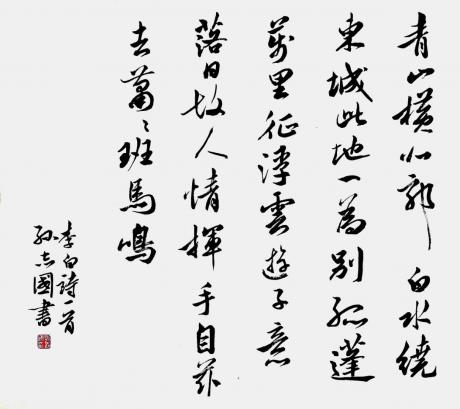 青山橫北郭白水繞
東城此地一為別孤蓬
萬里征浮雲遊子意
落日故人情揮手自茲
去蕭〻班馬鳴
李白詩一首
孙志國書